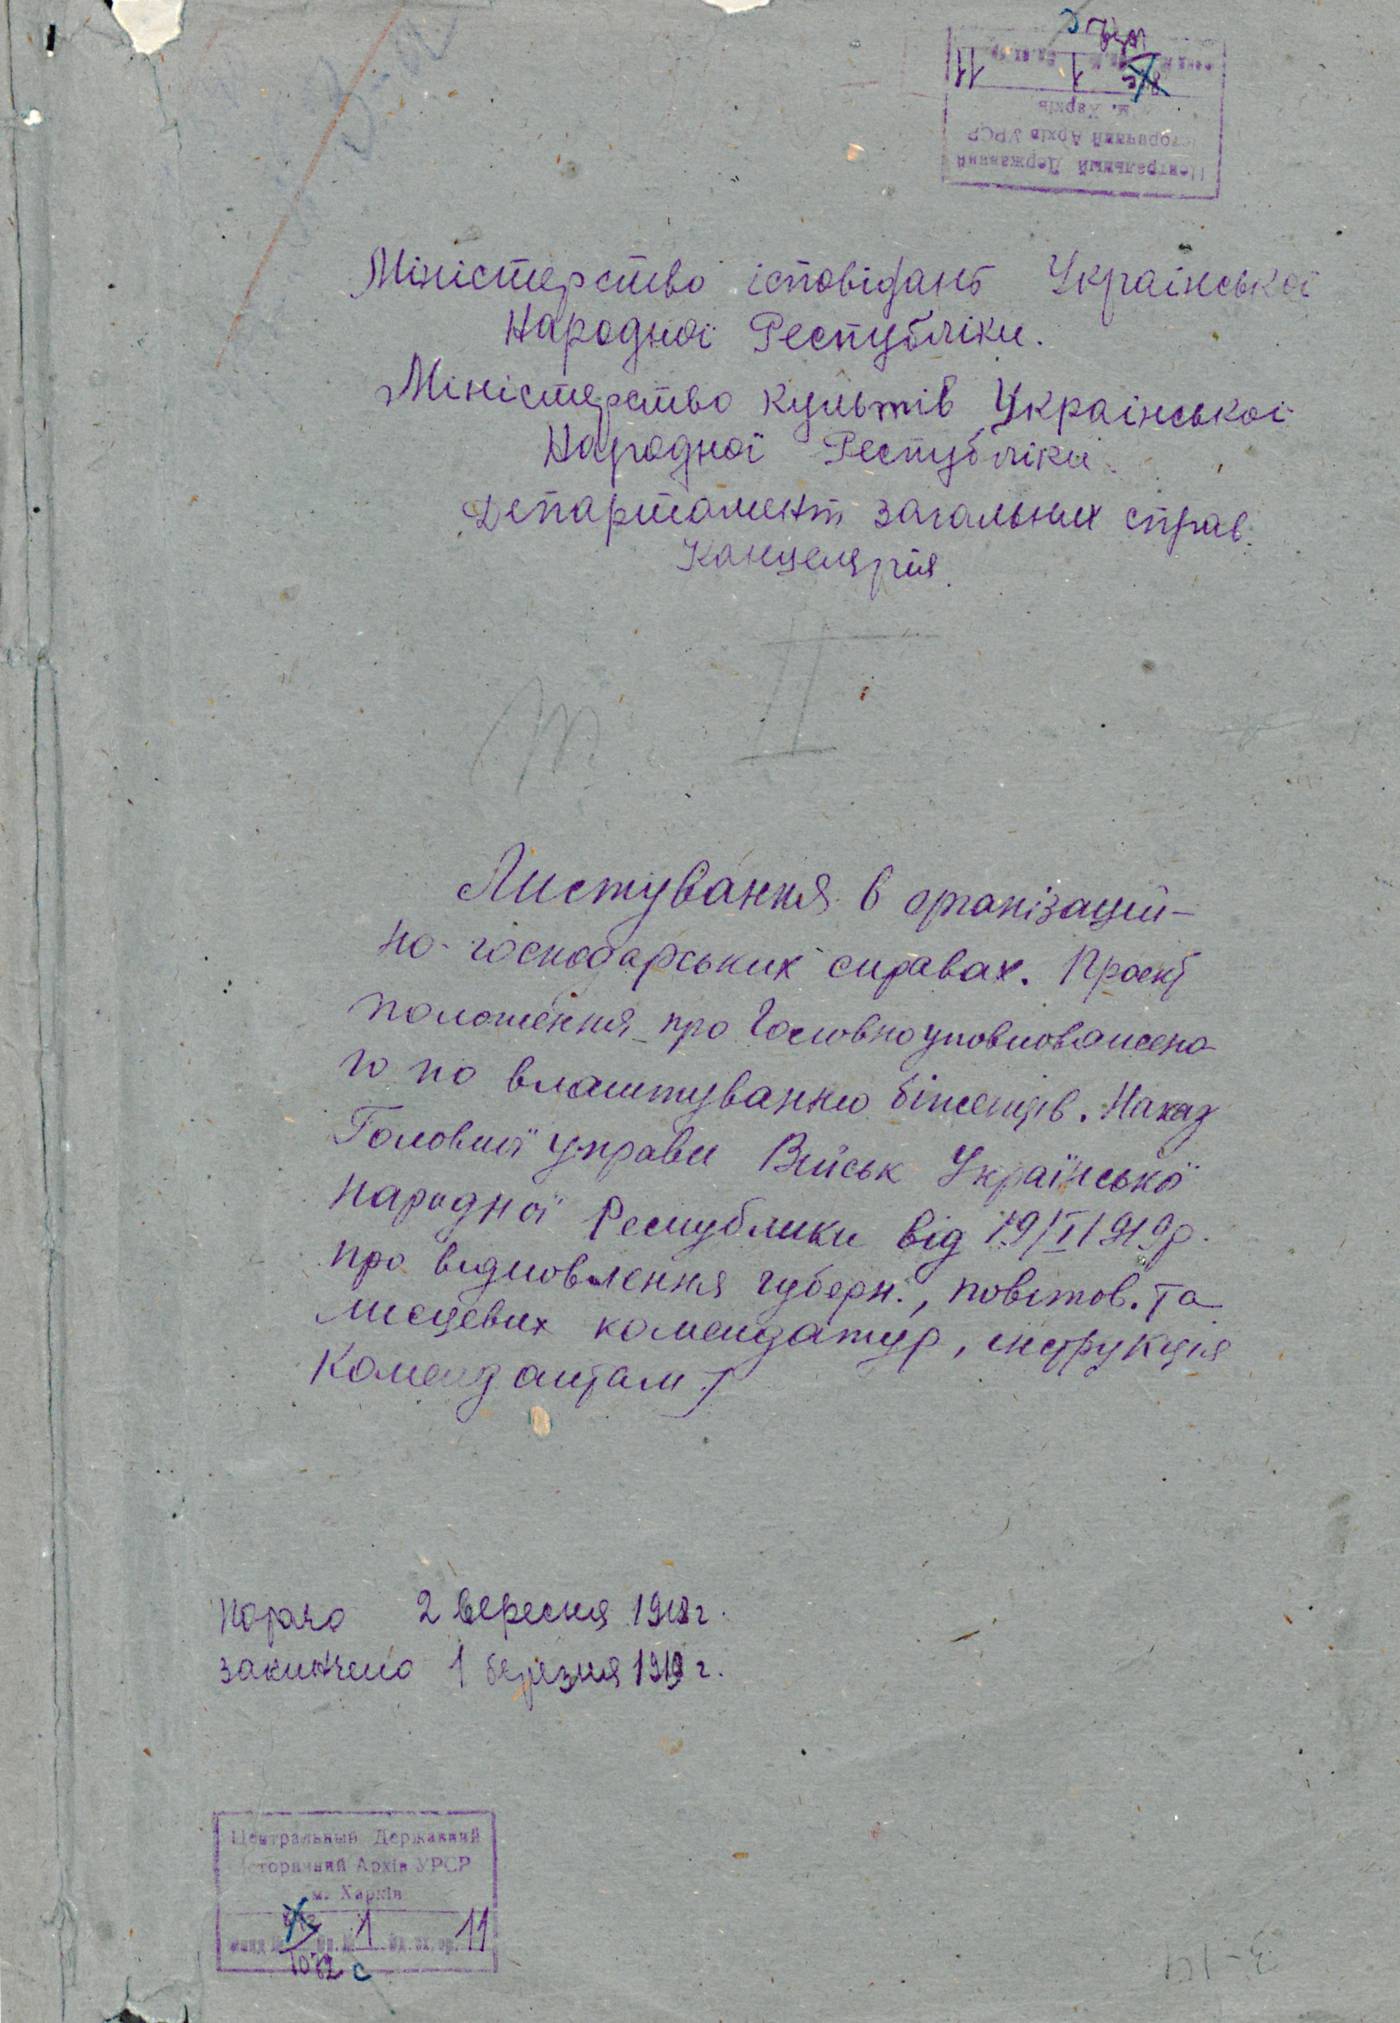 Центральный Державний
Історичний Архів УРСР
м. Харків
1 11
Міністерство ісповідань Української
Народної Республіки.
Міністерство культів Української
Народної Республіки.
Департамент загальних справ.
Канцелярія.
т. II
Листування в організацій-
но-господарських справах. Проект
положення про Головноуповноважено-
го по влаштуванню біженців. Наказ
Головної управи Військ Української
Народної Республики від 19/I 1919р.
про відновлення губерн., повітов. та
місцевих комендатур, інструкція
комендантам.
Почато 2 вересня 1918 г.
Закінчено 1 березня 1919 г.
Центральный Державний
Історичний Архів УРСР
м. Харків
фонд № Оп. № 1 Од. зб. 11
1072 с
3-19